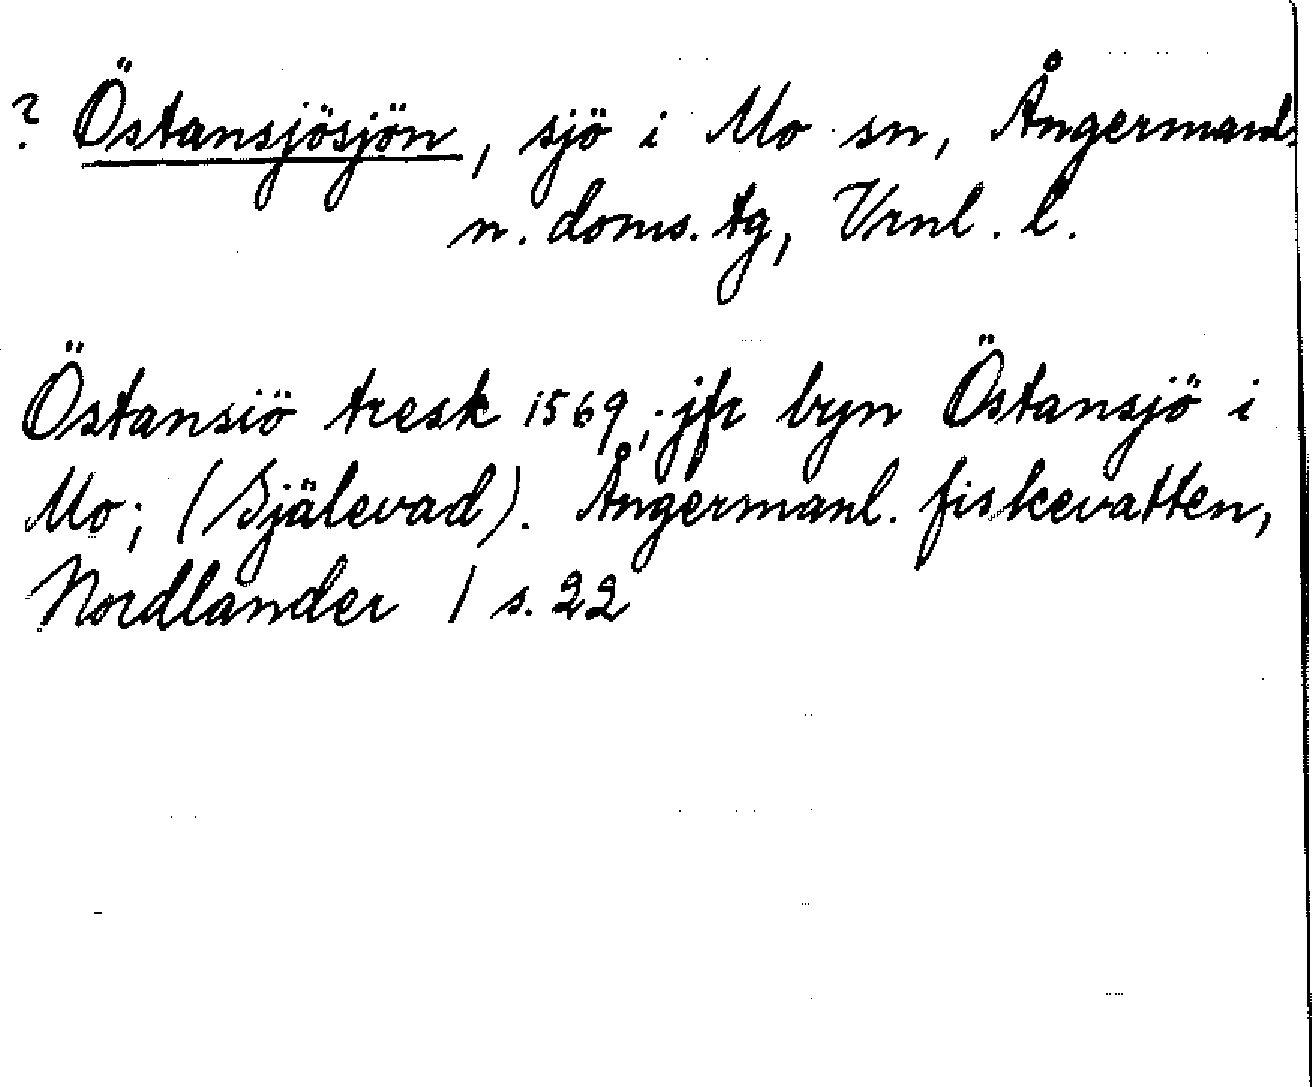 ? Östansjösjön, sjö i Mo sn, Ångermanl.
n. doms. tg, Vrnl. l.
Östansiö tresk 1569; jfr byn Östansjö i
Mo; (Själevad). Ångermanl. fiskevatten,
Nordlander 1 s. 22